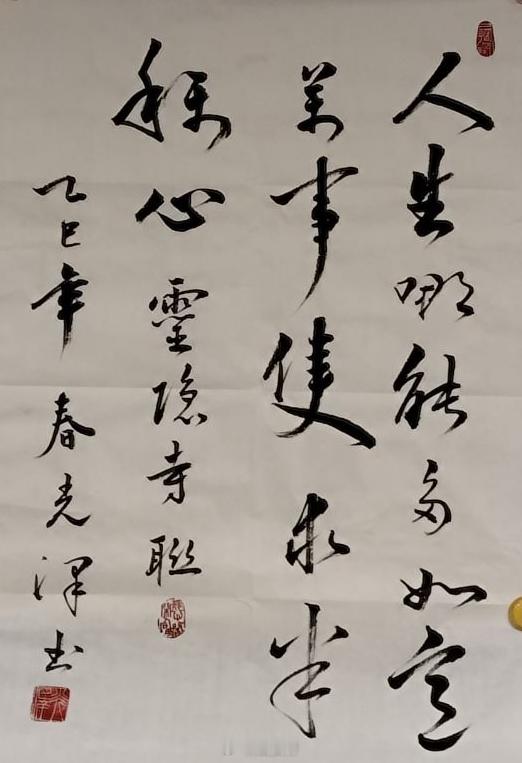 人生哪能多如意
万事隻求半
称心 靈隐寺聯
乙巳年 春光泽书